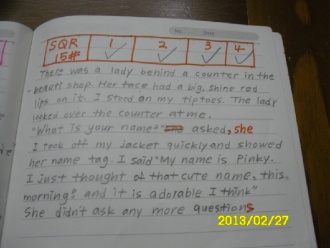 SQR 1 2 3 4
15#
There was a lady behind a counter in the
beauti shop. Her face had a big, shine red
lips on it. I stood on my tiptoes. The lady
looked over the counter at me.
"What is your name?" asked, she
I took off my jacket quickly and showed
her name tag. I said "My name is Pinky.
I just thought of that cute name, this
morning? and it is adorable I think"
She didn't ask any more questions
2013/02/27